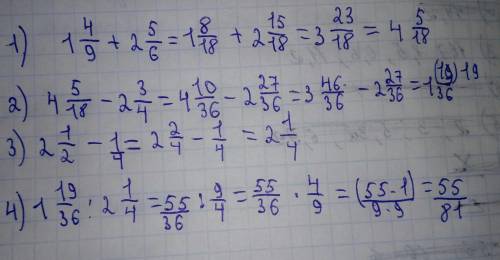 1) 1 4/9 + 2 5/6 = 1 8/18 + 2 15/18 = 3 23/18 = 4 5/18
2) 4 5/18 - 2 3/4 = 4 10/36 - 2 27/36 = 3 46/36 - 2 27/36 = 1 (19)/36 19
3) 2 1/2 - 1/4 = 2 2/4 - 1/4 = 2 1/4
4) 1 19/36 : 2 1/4 = 55/36 : 9/4 = 55/36 · 4/9 = (55·1)/9·9 = 55/81